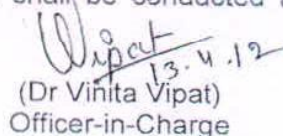 shall be conducted
Vipat
13.4.12
(Dr Vinita Vipat)
Officer-in-Charge